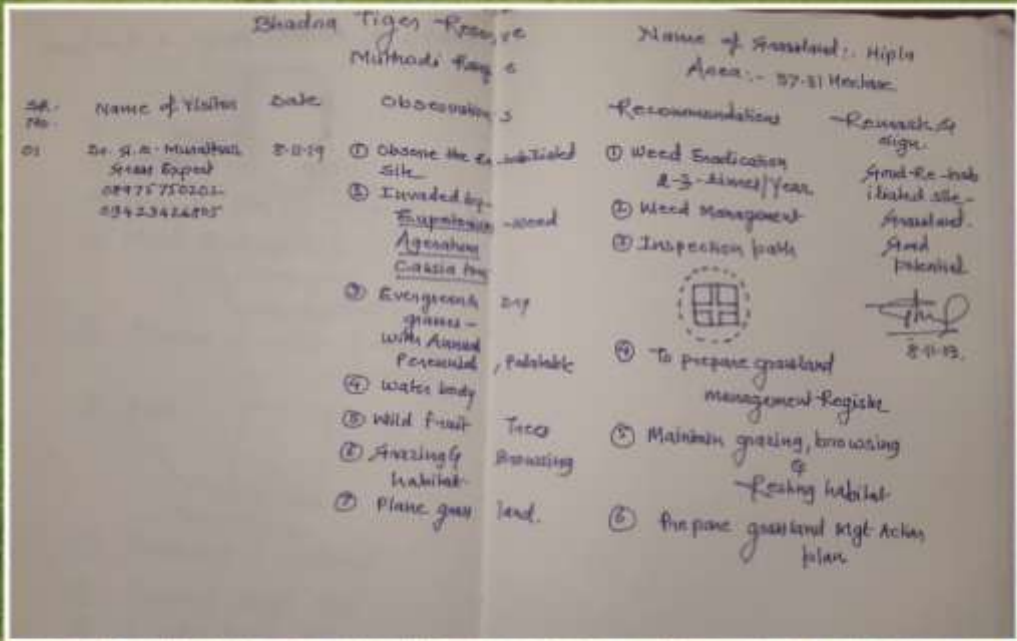 Bhadra Tiger Reserve
Muthodi Range
Name of Grassland:. Hipla
Area:- 57-31 Hectare
SR. No. Name of Visitor Date Observations Recommendations Remark & sign.
01 Dr. G.R. 8-11-19
Grass Expert
08975750202
① Observe the site
② Invaded by-
Eupatorium -weed
Ageratum
Cassia tora
③ Evergreen &
grasses-
with Annual
Perennial, Palatable
④ Water body
⑤ Wild fruit Trees
⑥ Grazing & Browsing
habitat
⑦ Plane grass land.
① Weed Eradication
2-3-times/Year
② Weed Management
③ Inspection path
④ To prepare grassland
management Register
⑤ Maintain grazing, browsing
&
Resting habitat
⑥ Prepare grassland Mgt Action
plan
Good-Re-hab
ilitated site-
Grassland.
Good
potential